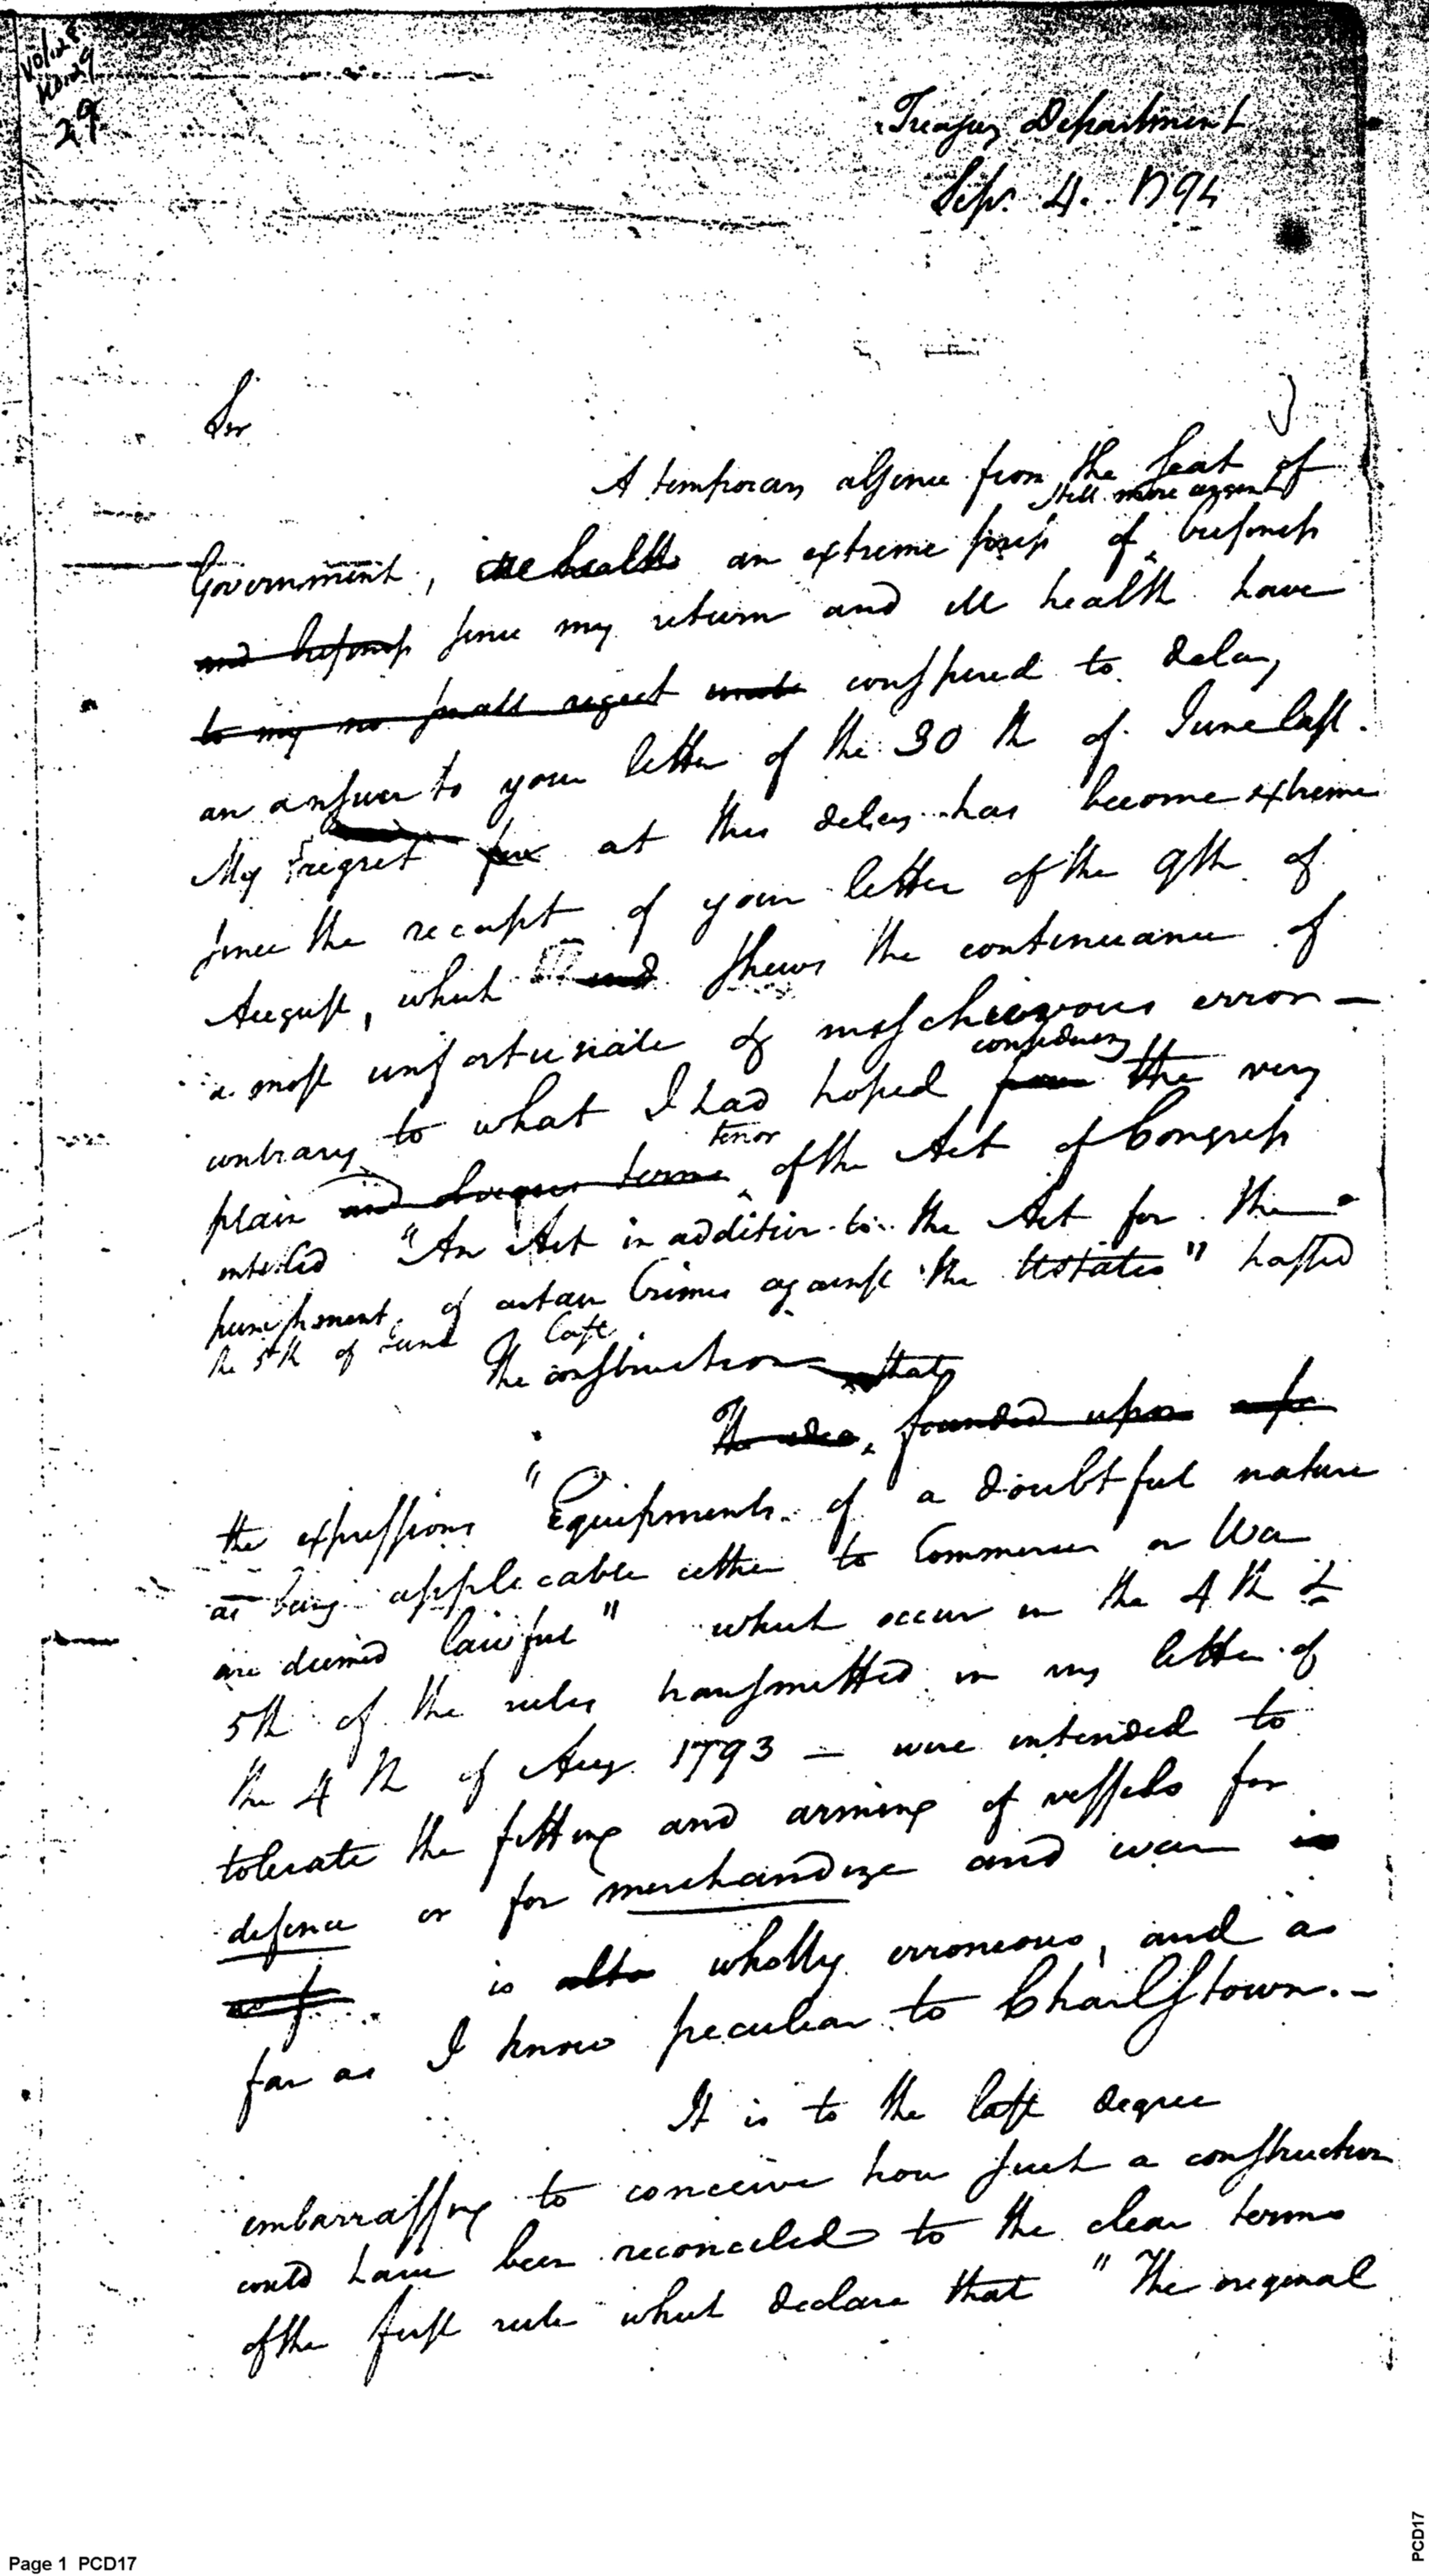 Vol. 28
No. 29
29
Treasury Department
Sepr. 4. 1794
Sir
A temporary absence from the seat of
still more urgent
Government, ill health an extreme press of business
and business since my return and ill health have
to my no small regret conspired to delay
an answer to your letter of the 30 th of June last.
My regret for at this delay has become extreme
since the receipt of your letter of the 9th of
August, which and shews the continuance of
a most unfortunate & mischievous error —
considering
contrary to what I had hoped from the very
tenor
plain and obvious terms of the Act of Congress
intitled "An Act in addition to the Act for the
punishment of certain Crimes against the UStates" passed
the 5th of June last
The construction that
The idea, founded upon
the expressions "Equipments of a doubtful nature
as being applicable either to Commerce or War
are deemed lawful" which occur in the 4 th &
5th of the rules transmitted in my letter of
the 4 th of Aug. 1793 — were intended to
tolerate the fitting and arming of vessels for
defence or for merchandize and war is
is also wholly erroneous, and as
far as I know peculiar to Charlstown. —
It is to the last degree
embarrassing to conceive how such a construction
could have been reconciled to the clear terms
of the first rule which declare that "The original
Page 1 PCD17
PCD17